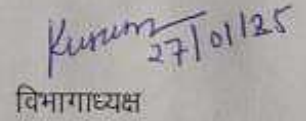 Kusum
27/01/25
विभागाध्यक्ष